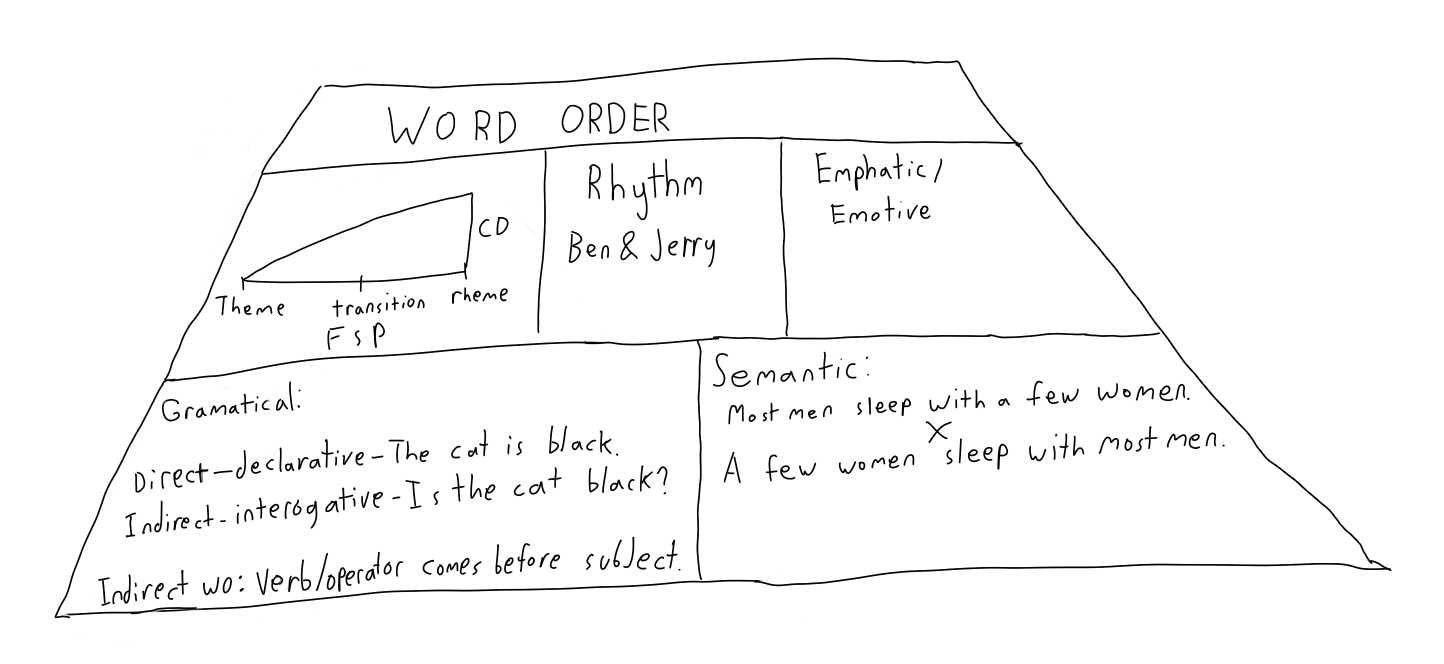 WORD ORDER
CD
Theme transition rheme
FSP
Rhythm
Ben & Jerry
Emphatic/
Emotive
Gramatical:
Direct-declarative-The cat is black.
Indirect-interogative-Is the cat black?
Indirect wo: Verb/operator comes before subject.
Semantic:
Most men sleep with a few women.
X
A few women sleep with most men.